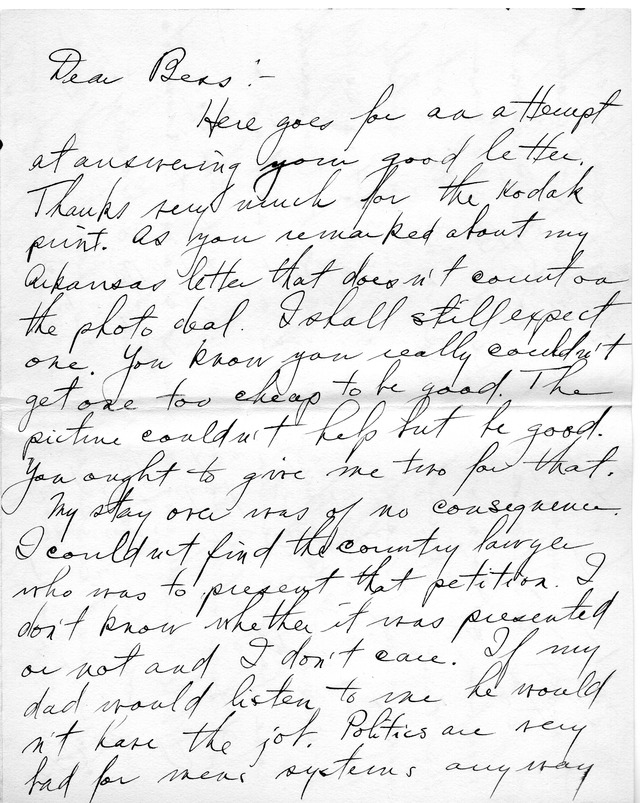 Dear Bess :-
Here goes for an attempt
at answering your good letter.
Thanks very much for the Kodak
print. As you remarked about my
Arkansas letter that doesn't count on
the photo deal. I shall still expect
one. You know you really couldn't
get one too cheap to be good. The
picture couldn't help but be good.
You ought to give me two for that.
My stay over was of no consequence.
I couldn't find the country lawyer
who was to present that petition. I
don't know whether it was presented
or not and I don't care. If my
dad would listen to me he would
n't have the job. Politics are very
bad for mens systems anyway